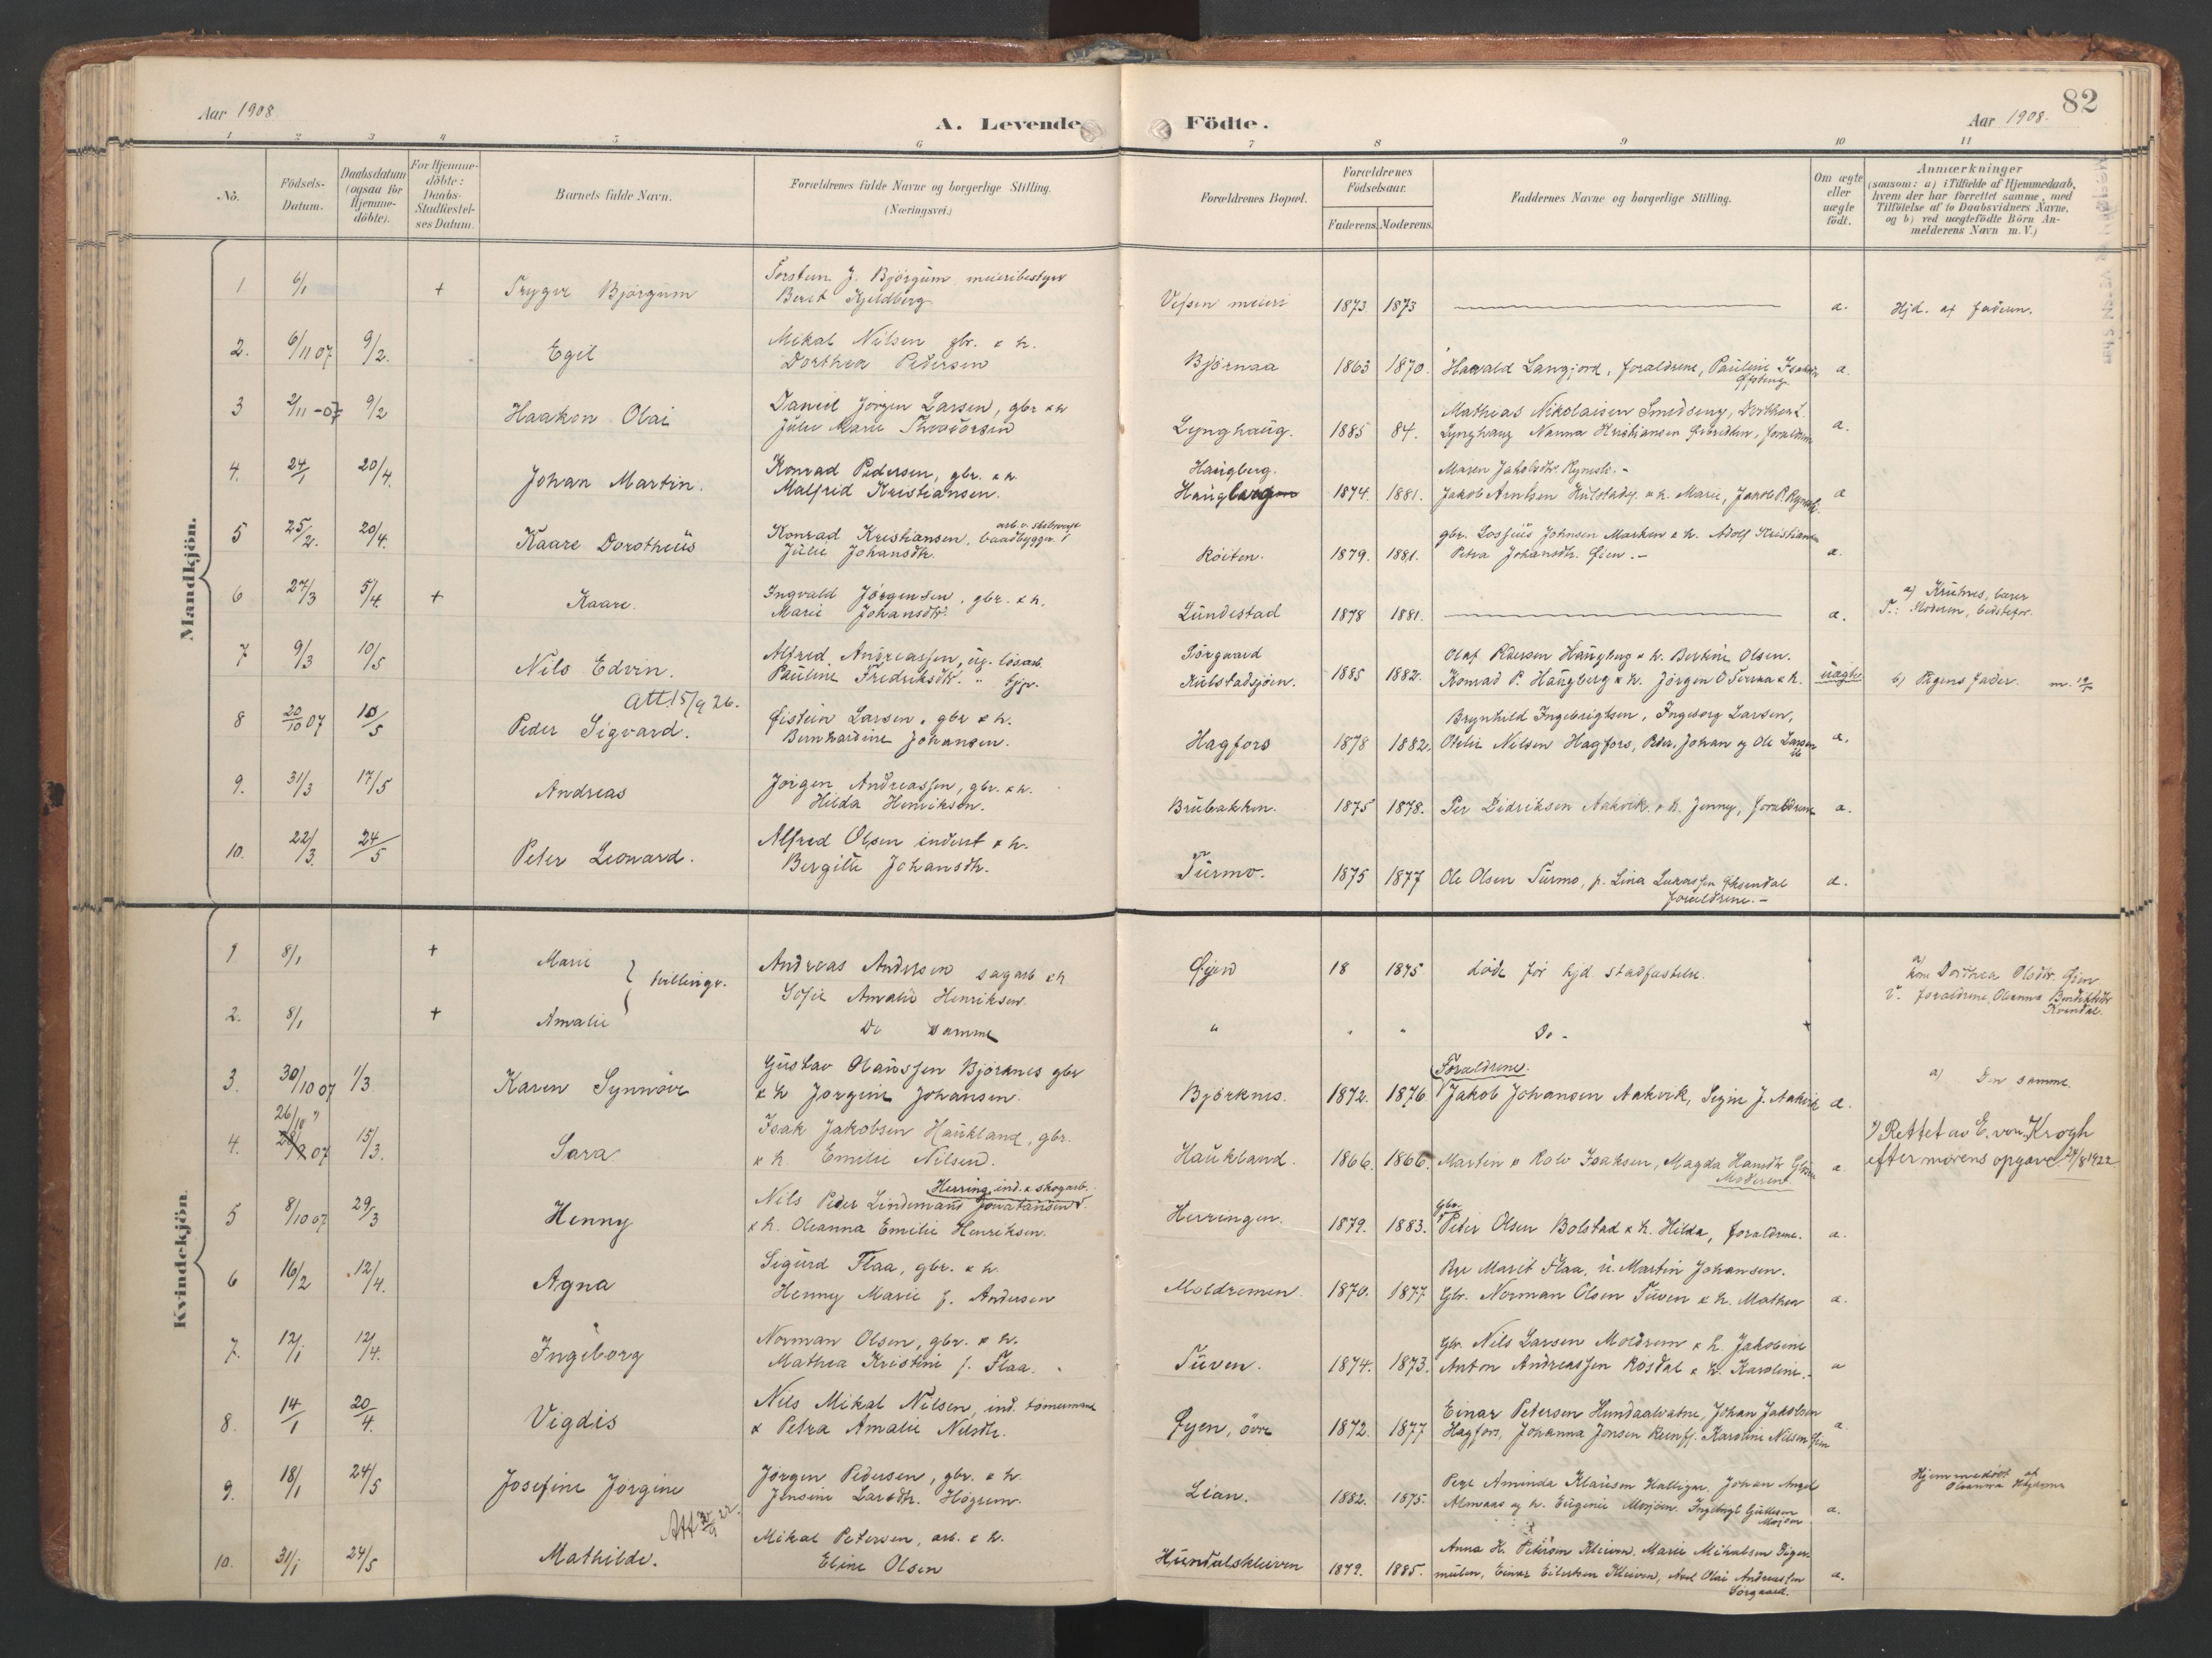 82
Aar 1908.
A. Levende Födte.
Aar 1908.
1 2 3 4 5 6 7 8 9 10 11
No.
Födsels-Datum.
Daabsdatum (ogsaa for Hjemmedöbte).
For Hjemmedöbte: Daabs-Stadfæstelses Datum.
Barnets fulde Navn.
Forældrenes fulde Navne og borgerlige Stilling.
(Næringsvei.)
Forældrenes Bopæl.
Forældrenes Födselsaar.
Faderens. Moderens.
Faddernes Navne og borgerlige Stilling.
Om ægte eller uægte födt.
Anmærkninger
(saasom: a) i Tilfælde af Hjemmedaab, hvem der har forrettet samme, med Tilföielse af to Daabsvidners Navne, og b) ved uægtefödte Börn Anmelderens Navn m. V.)
Mandkjön.
1 6/1 + Trygve Bjørgum
Torstein J. Bjørgum meieribestyrer
Berit Kjeldberg
Vefsen meieri 1873 1873 a. Hjd. af faderen.
2. 6/11 07 9/2. Egil
Mikal Nilsen gbr. & h.
Dorthea Pedersen
Bjørnaa 1863 1870. Harald Langjord, forældrene, Pauline Isaksdr a.
3 2/11-07 9/2 Haakon Olai
Daniel Jörgen Larsen, gbr & h
Julie Marie Theodorsen
Lynghaug. 1885 84.
Mathias Nikolaisen Smedseng, Dorthea L.
Lynghaug Nanna Kristiansen forældrene a.
4. 24/1 20/4. Johan Martin.
Konrad Pedersen, gbr. & h
Malfrid Kristiansen.
Haugberg.
1874. 1881.
Maren Jakobsdtr. Rynes.-
Jakob Arntsen Kulstadsj. & h. Marie, Jakob P. a
5 25/2. 20/4. Kaare Dorotheüs
Konrad Kristiansen, baadbygger.
Julie Johansdtr.
Röiten. 1879. 1881.
gbr. Losfius Johnsen Marken & h. Adolf Kristiansen
Petra Johansdtr. Øien.- a.
6 27/3 5/4. + Kaare.
Ingvald Jörgensen, gbr. & h.
Marie Johansdtr.
Lundestad 1878 1881. a.
T.: Moderen, bedstefor.
7 9/3 10/5 Nils Edvin.
Att. 15/9 26.
Alfred Andreassen, ug. lösarb.
Pauline Fredriksdtr. " tjp.
Sörgaard
Kulstadsjöen. 1885 1882.
Olaf Pedersen Haugberg & h. Bertine Olsen.
Konrad P. Haugberg & h. Jörgen O & h. uægte b) Pigens fader.
8 20/10 07 10/5 Peder Sigvard.
Øistein Larsen, gbr & h.
Bernhardine Johansen.
Hagfors 1878 1882.
Brynhild Ingebrigtsen, Ingeborg Larsen,
Otelie Nilsen Hagfors, Peder, Johan og Ole Larsen a.
9. 31/3 17/5 Andreas
Jörgen Andreassen, gbr. & h.
Hilda Henriksen.
Brubakken. 1875 1878. Per Didriksen Aakvik & h. Jenny, forældrene a.
10. 22/3. 24/5 Peter Leonard.
Alfred Olsen inderst & h.
Bergitte Johansdtr.
Turmo. 1875 1877
Ole Olsen Turmo, p. Lina Lukassen
forældrene.- a.
Kvindekjön.
1 8/1 + Marie
tvillinger.
Andreas Andersen sagarb & h
Sofie Amalie Henriksen
Øjen 18 1875. døde før hjd stadfæstelse.
Dorthea Olsdtr. Øien
V. forældrene, Oleanna
Kvendal.
2. 8/1 + Amalie
De samme
" " " Do -
3. 30/10 07 1/3. Karen Synnöve
Gustav Olaussen Björknes gbr
& h Jörgine Johansen.
Björknes. 1872. 1876
Forældrene.
Jakob Johansen Aakvik, Signe J. Aakvik a. a) Den samme.
4. 26/10 " 15/3. Sara.
Isak Jakobsen Haukland, gbr.
& h. Emilie Nilsen.
Haukland. 1866. 1866.
Martin & Rolv Isaksen, Magda Hansdtr
Moderen a
1) Rettet av E. von Krogh
efter morens opgave 24/8 1922.
5 8/10 07 29/3 Henny
Herring, ind. & skogarb.
Nils Peder Lindemann Jonatansen
& h. Oleanna Emilie Henriksen.
Herringen. 1879. 1883.
gbr.
Peter Olsen Bolstad & h. Hilda, forældrene. a.
6 16/2 12/4. Agna
Sigurd Flaa, gbr. & h.
Henny Marie f. Andersen
Moldremen 1870. 1877
Pge Marit Flaa, u. Martin Johansen.
Gbr. Norman Olsen Tuven & h. Mathea a.
7. 12/1 12/4. Ingeborg
Norman Olsen, gbr. & h.
Mathea Kristine f. Flaa.
Tuven. 1874. 1873.
Gbr. Nils Larsen Moldrem & h. Jakobine
Anton Andreassen Rosdal & h. Karoline.- a
8. 14/1 20/4. Vigdis
Nils Mikal Nilsen, ind. tömmermand
& Petra Amalie Nilsdtr.
Øyen, övre 1872. 1877
Einar Petersen Hundaalvatne, Johan Jakobsen
Hagfors, Johanna Jensen Karoline Nilsen Øien a
9. 18/1 24/5 Josefine Jörgine
Jörgen Pedersen, gbr. & h.
Jensine Larsdtr. Högrem.
Lian. 1882. 1875.
Pige Aminda Klausen Hallign. Johan Angel
Almaas og h. Eugenie Mosjöen. Ingebrigt
Mosjöen a.
Hjemmedöbt af
Oleanna
10. 31/1 24/5 Mathilde.
Mikal Petersen, arb. & h.
Eline Olsen
Hundalskleiven 1879. 1885.
Anna H. Petersen Kleiven. Marie Mikalsen
Einar Eilertsen Kleiven, Axel Olai Andreassen
Sörgaard. a.